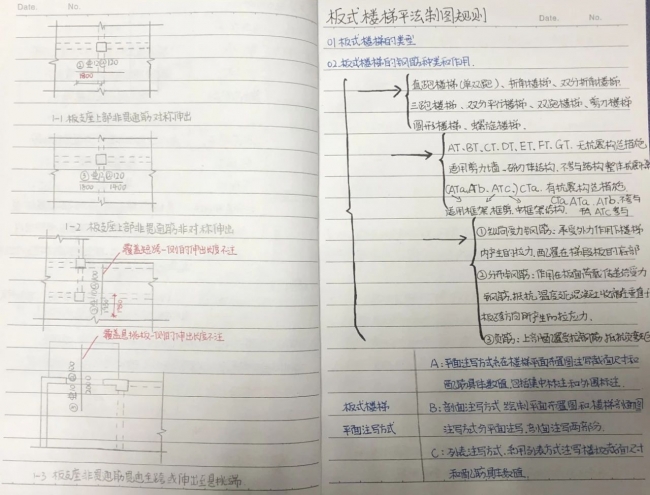 Date. No.
①⌀12@120
1800
1-1 板支座上部非贯通筋对称伸出
③⌀12@120
1800 1400
1-2 板支座上部非贯通筋非对称伸出
覆盖短跨一侧的伸出长度不注
覆盖悬挑板一侧的伸出长度不注
2000
1-3 板支座非贯通筋贯通全跨或伸出至悬挑端
板式楼梯平法制图规则
Date. No.
01 板式楼梯的类型
02 板式楼梯的钢筋种类和作用.
直跑楼梯(单双跑)、折角楼梯、双分折角楼梯
三跑楼梯、双分平行楼梯、双跑楼梯、剪刀楼梯
圆形楼梯、螺旋楼梯.
AT.BT.CT.DT.ET.FT.GT. 无抗震构造措施
适用剪力墙、砌体结构. 不参与结构整体抗震
(ATa.ATb.ATc.)CTa. 有抗震构造措施
CTa.ATa.ATb.不参与
适用框架.框剪.中框架结构.
ATc参与
①纵向受力钢筋: 承受外力作用下楼梯
内产生的拉力, 配置在梯段板的底部
②分布钢筋: 作用在板面荷载传递给受力
板跨方向所产生的拉应力.
③负筋:
A: 平面注写方式系在楼梯平面布置图注写截面尺寸和
配筋具体数值. 包括集中标注和外围标注.
板式楼梯
B: 剖面注写方式
平面注写方式
注写方式分平面注写、剖面注写两部分.
C: 列表注写方式. 采用列表方式注写梯板截面尺寸
和配筋具体数值.